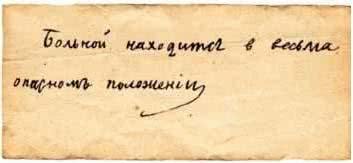 Больной находится в весьма
опасномъ положенiи